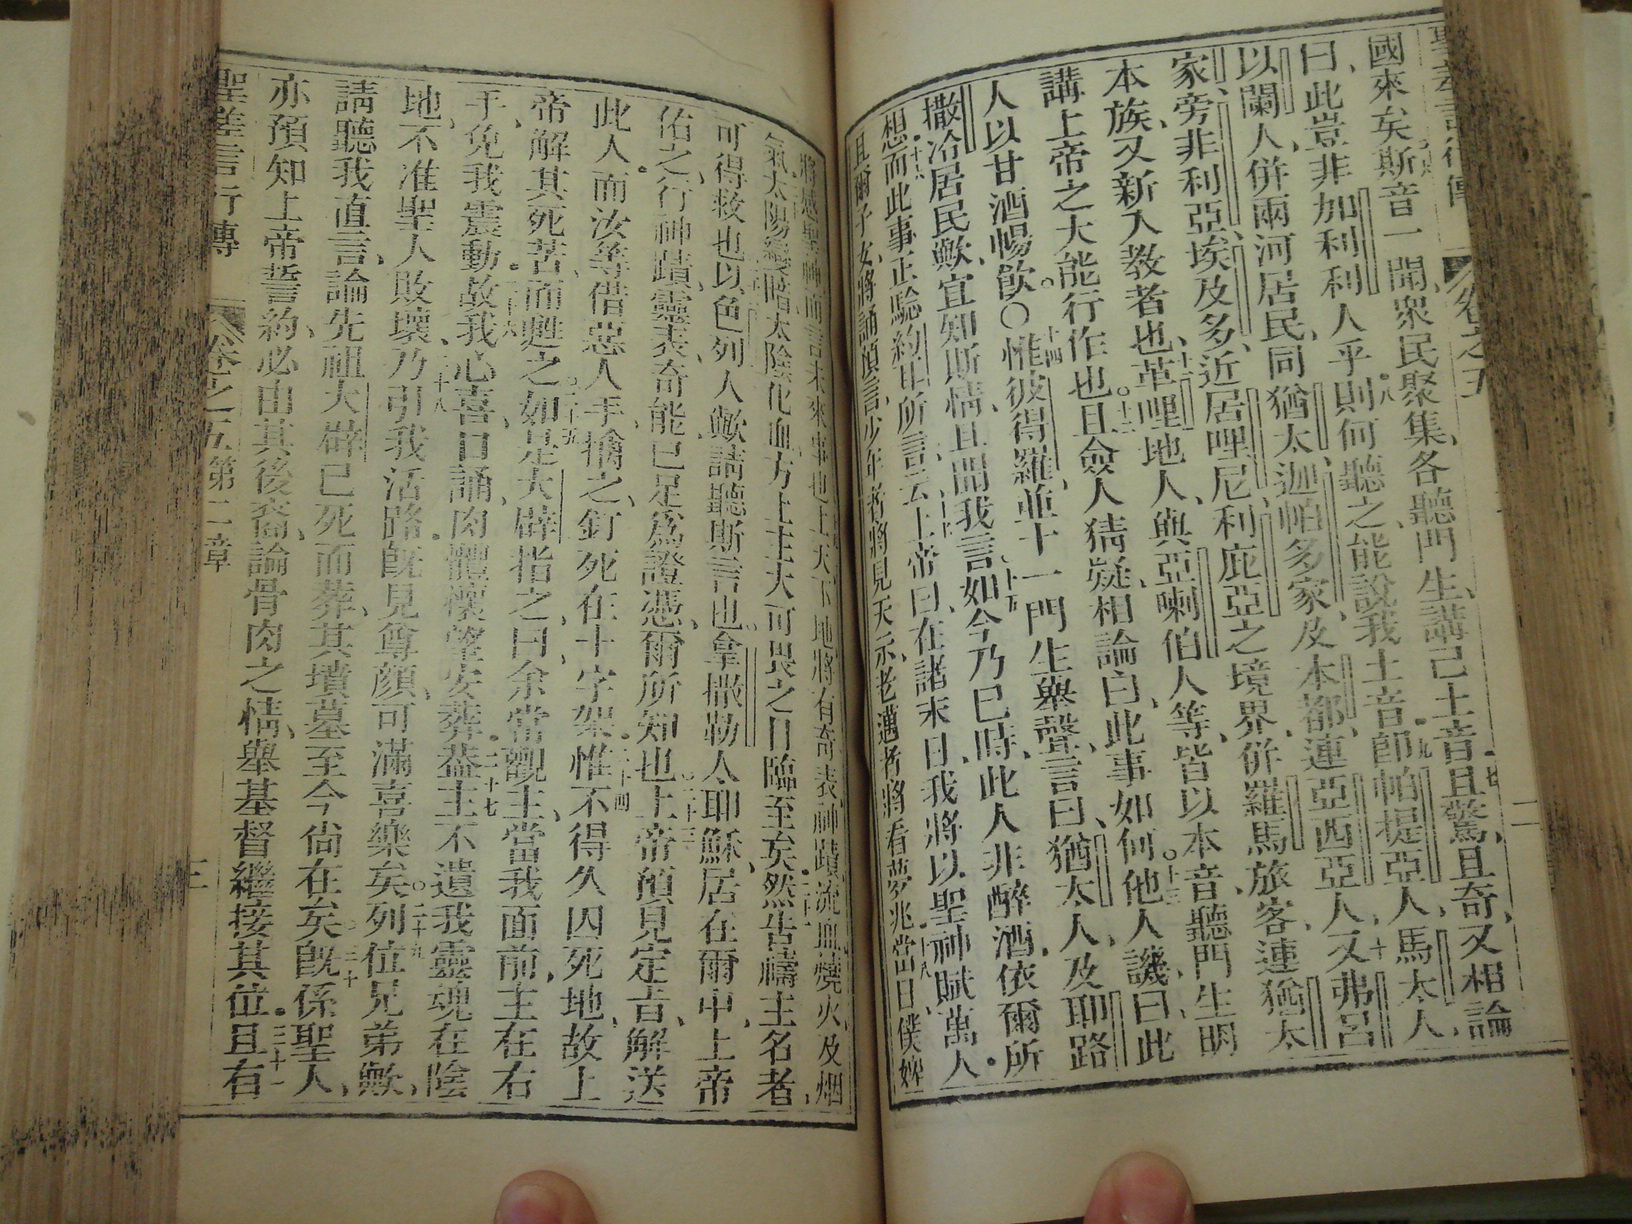 國來矣斯音一聞衆民聚集各聽門生講己土音且驚且奇又相論
曰此豈非加利利人乎則何聽之能說我土音卽帕提亞人馬太人
以闌人併兩河居民同猶太迦帕多家及本都連亞西亞人又弗呂
家旁非利亞埃及多近居哩尼利庇亞之境界併羅馬旅客連猶太
本族又新入教者也革哩地人與亞喇伯人等皆以本音聽門生明
講上帝之大能行作也且僉人猜疑相論曰此事如何他人譏曰此
人以甘酒暢飮○惟彼得羅並十一門生舉聲言曰猶太人及耶路
撒冷居民歟宜知斯情且聞我言如今乃巳時此人非醉酒依爾所
想而此事正驗約所言云上帝曰在諸末日我將以聖神賦萬人
且爾子女將誦預言少年者將見天示老邁者將看夢兆當日僕婢
將感聖神而言未來事也上天下地將有奇表神蹟流血燒火及烟
氣太陽變暗太陰化血方上主大可畏之日臨至矣然告禱主名者
可得救也以色列人歟請聽斯言也拿撒勒人耶穌居在爾中上帝
佑之行神蹟靈表奇能已足爲證憑爾所知也上帝預見定旨解送
此人而汝等借惡人手擒之釘死在十字架惟不得久囚死地故上
帝解其死苦而甦之如是大辟指之曰余常觀主當我面前主在右
手免我震動故我心喜口誦肉體懷望安葬蓋主不遺我靈魂在陰
地不准聖人敗壞乃引我活路旣見尊顔可滿喜樂矣列位兄弟歟
請聽我直言論先祖大辟已死而葬其墳墓至今尙在矣旣係聖人
亦預知上帝誓約必由其後裔論骨肉之情舉基督繼接其位且有
聖差言行傳 卷之五 第二章 三